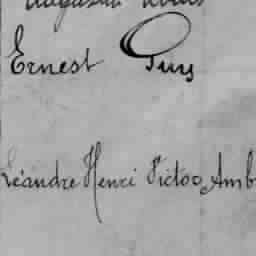 Ernest Puy
Léandre Henri Victor Amb